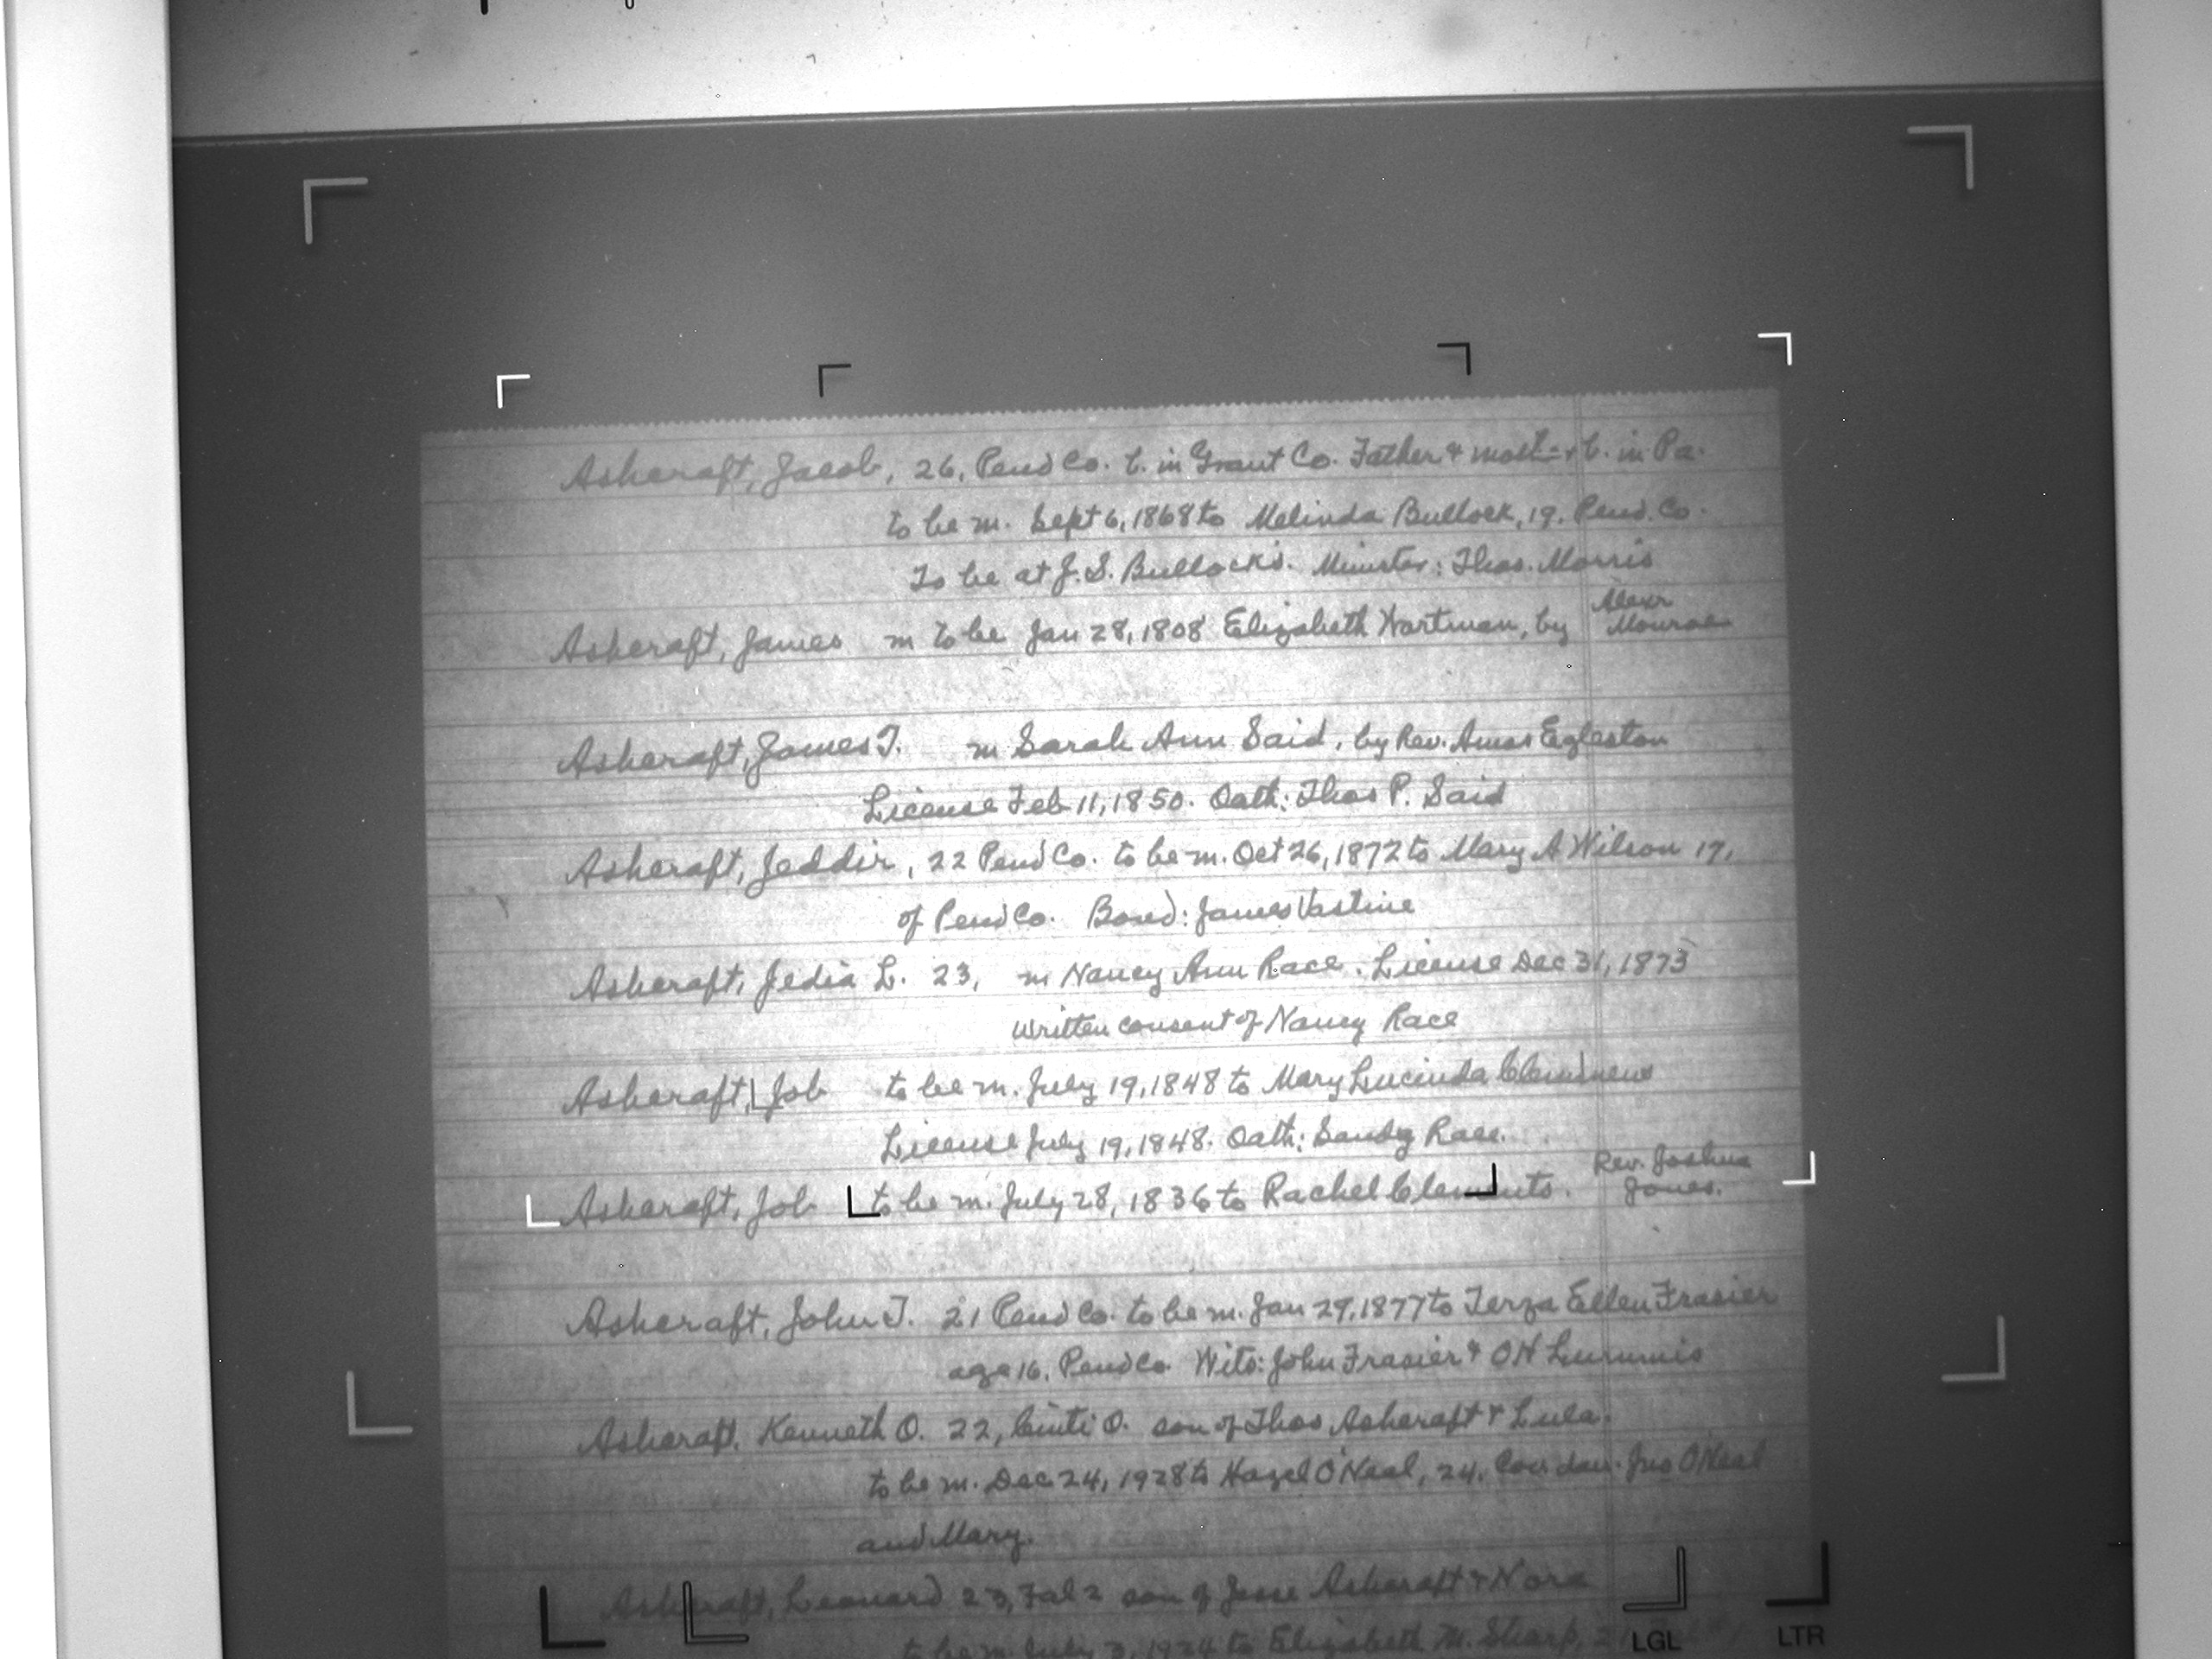 Ashcraft, Jacob, 26, Pend Co. b. in Grant Co. Father & moth-r b. in Pa.
to be m. Sept 6, 1868 to Melinda Bullock, 19. Pend. Co.
To be at J. S. Bullock's. Minister: Thos. Morris
Ashcraft, James m to be Jan 28, 1808 Elizabeth Hartman, by Alexr Monroe
Ashcraft, James T. m Sarah Ann Said, by Rev. Amos Egleston
License Feb 11, 1850. Oath: Thos P. Said
Ashcraft, Jeddir, 22 Pend Co. to be m. Oct 26, 1872 to Mary A Wilson 17,
of Pend Co. Bond: James Vastine
Ashcraft, Jedia L. 23, m Nancy Ann Race. License Dec 31, 1873
Written consent of Nancy Race
Ashcraft, Job to be m. July 19, 1848 to Mary Lucinda
License July 19, 1848. Oath: Sandy Race.
Ashcraft, Job to be m. July 28, 1836 to Rachel Clements. Rev. Joshua Jones.
Ashcraft, John T. 21 Pend Co. to be m. Jan 29, 1877 to Terza Ellen Frasier
age 16, Pend Co. Wits: John Frasier & O H Lummis
Ashcraft, Kenneth O. 22, Cinti O. son of Thos. Ashcraft & Lula.
to be m. Dec 24, 1928 to Hazel O'Neal, 24, Cov. dau. Jno O'Neal
and Mary.
Ashcraft, Leonard 23, Fal 2 son of Jesse Ashcraft & Nora
to be m. July 3, 1924 to Elizabeth M. Sharp,
LGL LTR